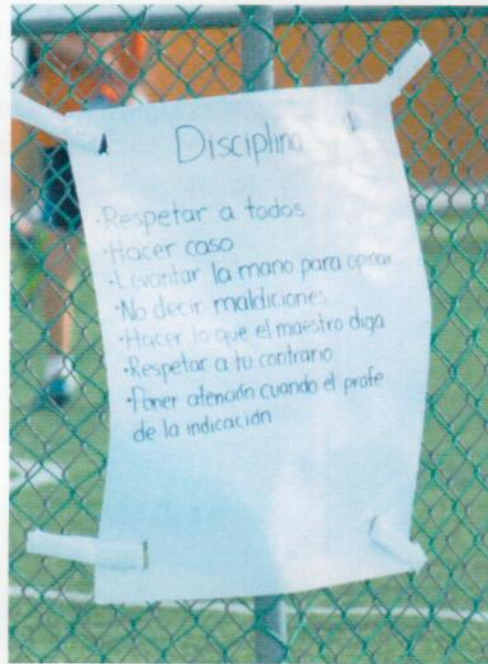 Disciplina
·Respetar a todos
·Hacer caso
·Levantar la mano para opinar
·No decir maldiciones
·Hacer lo que el maestro diga
·Respetar a tu contrario
·Poner atención cuando el profe
de la indicación